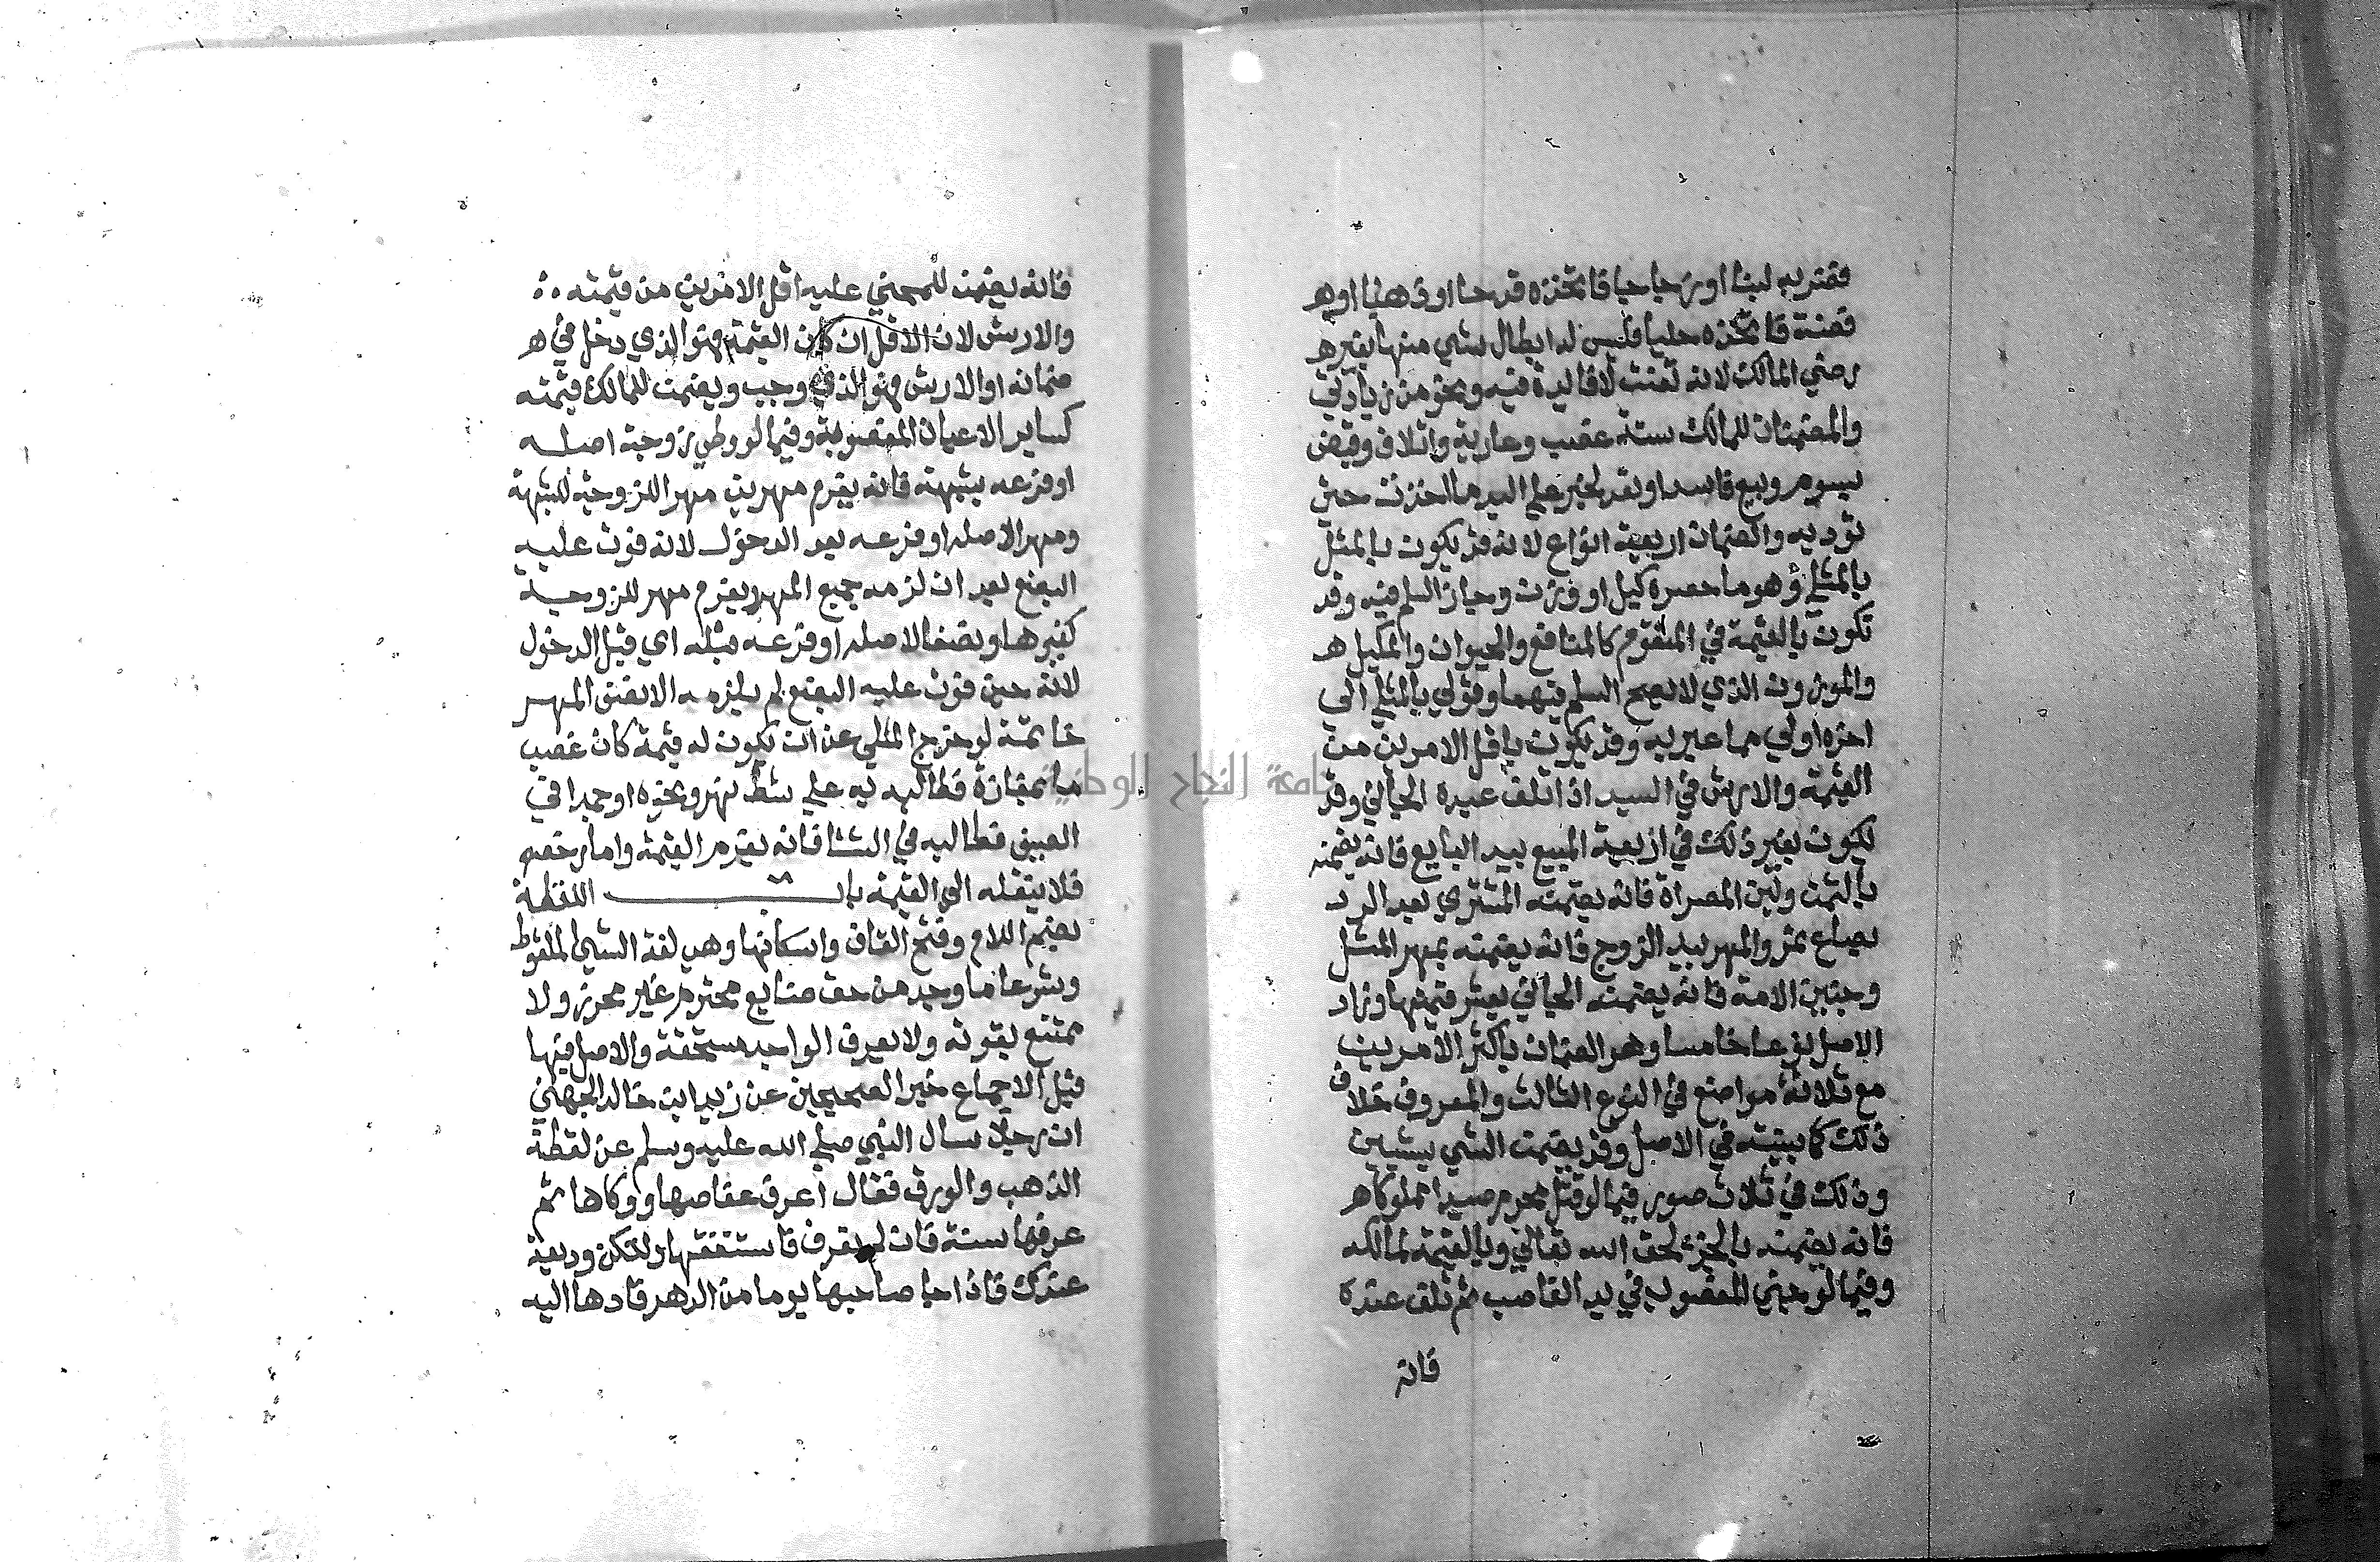 فضربه لبنا او زجاجا فاتخذه قدحا او ذهبا او
فضة فاتخذه حليا فليس له ابطال شي منها بغير
رضي المالك لانه تعنت لا فايدة فيه ونحو من زيادتي
والمضمنات للمالك ستة غصب وعارية واتلاف وقبض
بسوم وبيع فاسد او تعد لخبر علي اليد ما اخذت حتي
توديه والضمان اربعة انواع لانه قد يكون بالمثل
بالمثلي وهو ما حصره كيل او وزن وجاز السلم فيه وقد
تكون بالقيمة في المتقوم كالمنافع والحيوان والمكيل
والموزون الذي لا يصح السلم فيهما وقولي بالمثلي الي
اخره اولي مما عبر به وقد يكون باقل الامرين من
القيمة والارش في السيد اذا اتلف عبده الجاني وقد
يكون بغير ذلك في اربعة المبيع بيد البايع فانه يضمنه
بالثمن ولبن المصراة فانه يضمنه المشتري بعد الرد
بصاع تمر والمهر بيد الزوج فانه يضمنه بمهر المثل
وجنين الامة فانه يضمنه الجاني بعشر قيمتها وزاد
الاصل نوعا خامسا وهو الضمان باكثر الامرين
مع ثلاثة مواضع في النوع الثالث والمعروف خلاف
ذلك كما بينته في الاصل وقد يضمن الشي بشيين
وذلك في ثلاث صور فيما لو قتل محرم صيدا مملوكا
فانه يضمنه بالجزء لحق الله تعالي وبالقيمة لمالكه
وفيما لو جني المغصوب في يد الغاصب ثم تلف عنده
فانه
فانه يضمن للمجني عليه اقل الامرين من قيمته
والارش لان الاقل ان كان القيمة فهو الذي دخل في
ضمانه او الارش فهو الذي وجب ويضمن للمالك قيمته
كساير الاعيان المغصوبة وفيما لو وطي زوجة اصله
او فرعه بشبهة فانه يغرم مهرين مهرا للزوجة للشبهة
ومهرا لاصله او فرعه بعد الدخول لانه فوت عليه
البضع بعد ان لزمه جميع المهر ويغرم مهر للزوجة
كغيرها ونصفا لاصله او فرعه قبله اي قبل الدخول
لانه حين فوت عليه البضع لم يلزمه الا نصف المهر
خاتمة لو خرج المثلي عن ان يكون له قيمة كان غصب
ما بمفازة فطالبه به علي شط نهر ونحوه او جمدا في
الصيف فطالبه في الشتا فانه يغرم القيمة واما رخصه
فلا ينقله الي القيمة باب اللقطة
بضم اللام وفتح القاف واسكانها وهي لغة الشي الملقوط
وشرعا ما وجد من حق ضايع محترم غير محرز ولا
ممتنع بقوته ولا يعرف الواجد مستحقه والاصل فيها
قبل الاجماع خبر الصحيحين عن زيد ابن خالد الجهني
ان رجلا سال النبي صلي الله عليه وسلم عن لقطة
الذهب والورق فقال اعرف عفاصها ووكاها ثم
عرفها سنة فان لم تعرف فاستنفقها ولتكن وديعة
عندك فاذا جا صاحبها يوما من الدهر فادها اليه
جامعة النجاح الوطنية